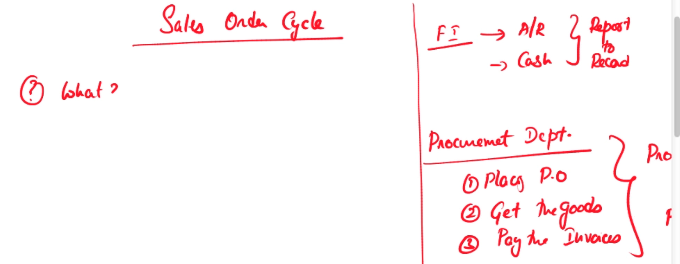 Sales Order Cycle
? What?
FI → A/R } Report to Record
→ Cash
Procuremet Dept.
① Place P.O
② Get the goods
③ Pay the Invoices
Pro